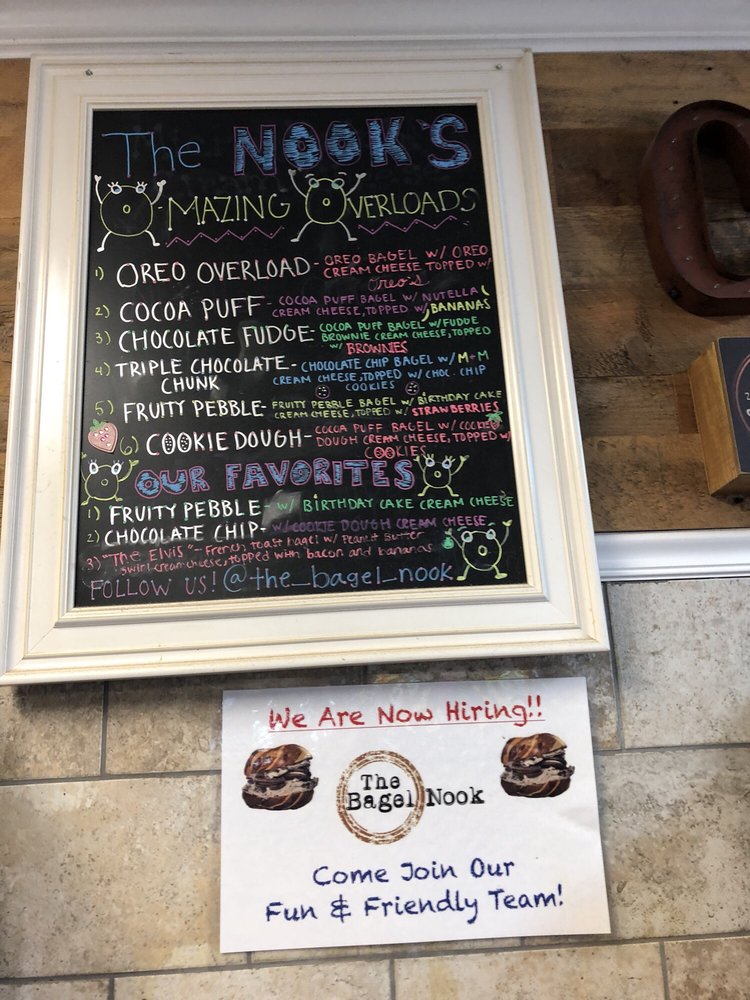 The NOOK'S
O-MAZING OVERLOADS
1) OREO OVERLOAD - OREO BAGEL W/ OREO
CREAM CHEESE TOPPED W/
Oreo's
2) COCOA PUFF - COCOA PUFF BAGEL W/ NUTELLA
CREAM CHEESE, TOPPED W/ BANANAS
3) CHOCOLATE FUDGE - COCOA PUFF BAGEL W/ FUDGE
BROWNIE CREAM CHEESE, TOPPED
W/ BROWNIES
4) TRIPLE CHOCOLATE - CHOCOLATE CHIP BAGEL W/ M+M
CHUNK CREAM CHEESE, TOPPED W/ CHOC. CHIP
COOKIES
5) FRUITY PEBBLE - FRUITY PEBBLE BAGEL W/ BIRTHDAY CAKE
CREAM CHEESE, TOPPED W/ STRAWBERRIES
6) COOKIE DOUGH - COCOA PUFF BAGEL W/ COOKIE
DOUGH CREAM CHEESE, TOPPED W/
COOKIES
OUR FAVORITES
1) FRUITY PEBBLE - W/ BIRTHDAY CAKE CREAM CHEESE
2) CHOCOLATE CHIP - W/ COOKIE DOUGH CREAM CHEESE
3) "The ELVIS" - French toast bagel w/ Peanut Butter
swirl cream cheese, topped with bacon and bananas
FOLLOW US! @the_bagel_nook
We Are Now Hiring!!
The
Bagel Nook
Come Join Our
Fun & Friendly Team!